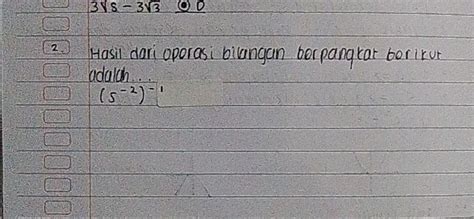 3√8 - 3√3 ⊙ D
2. Hasil dari operasi bilangan berpangkat berikut
adalah...
(5⁻²)⁻¹